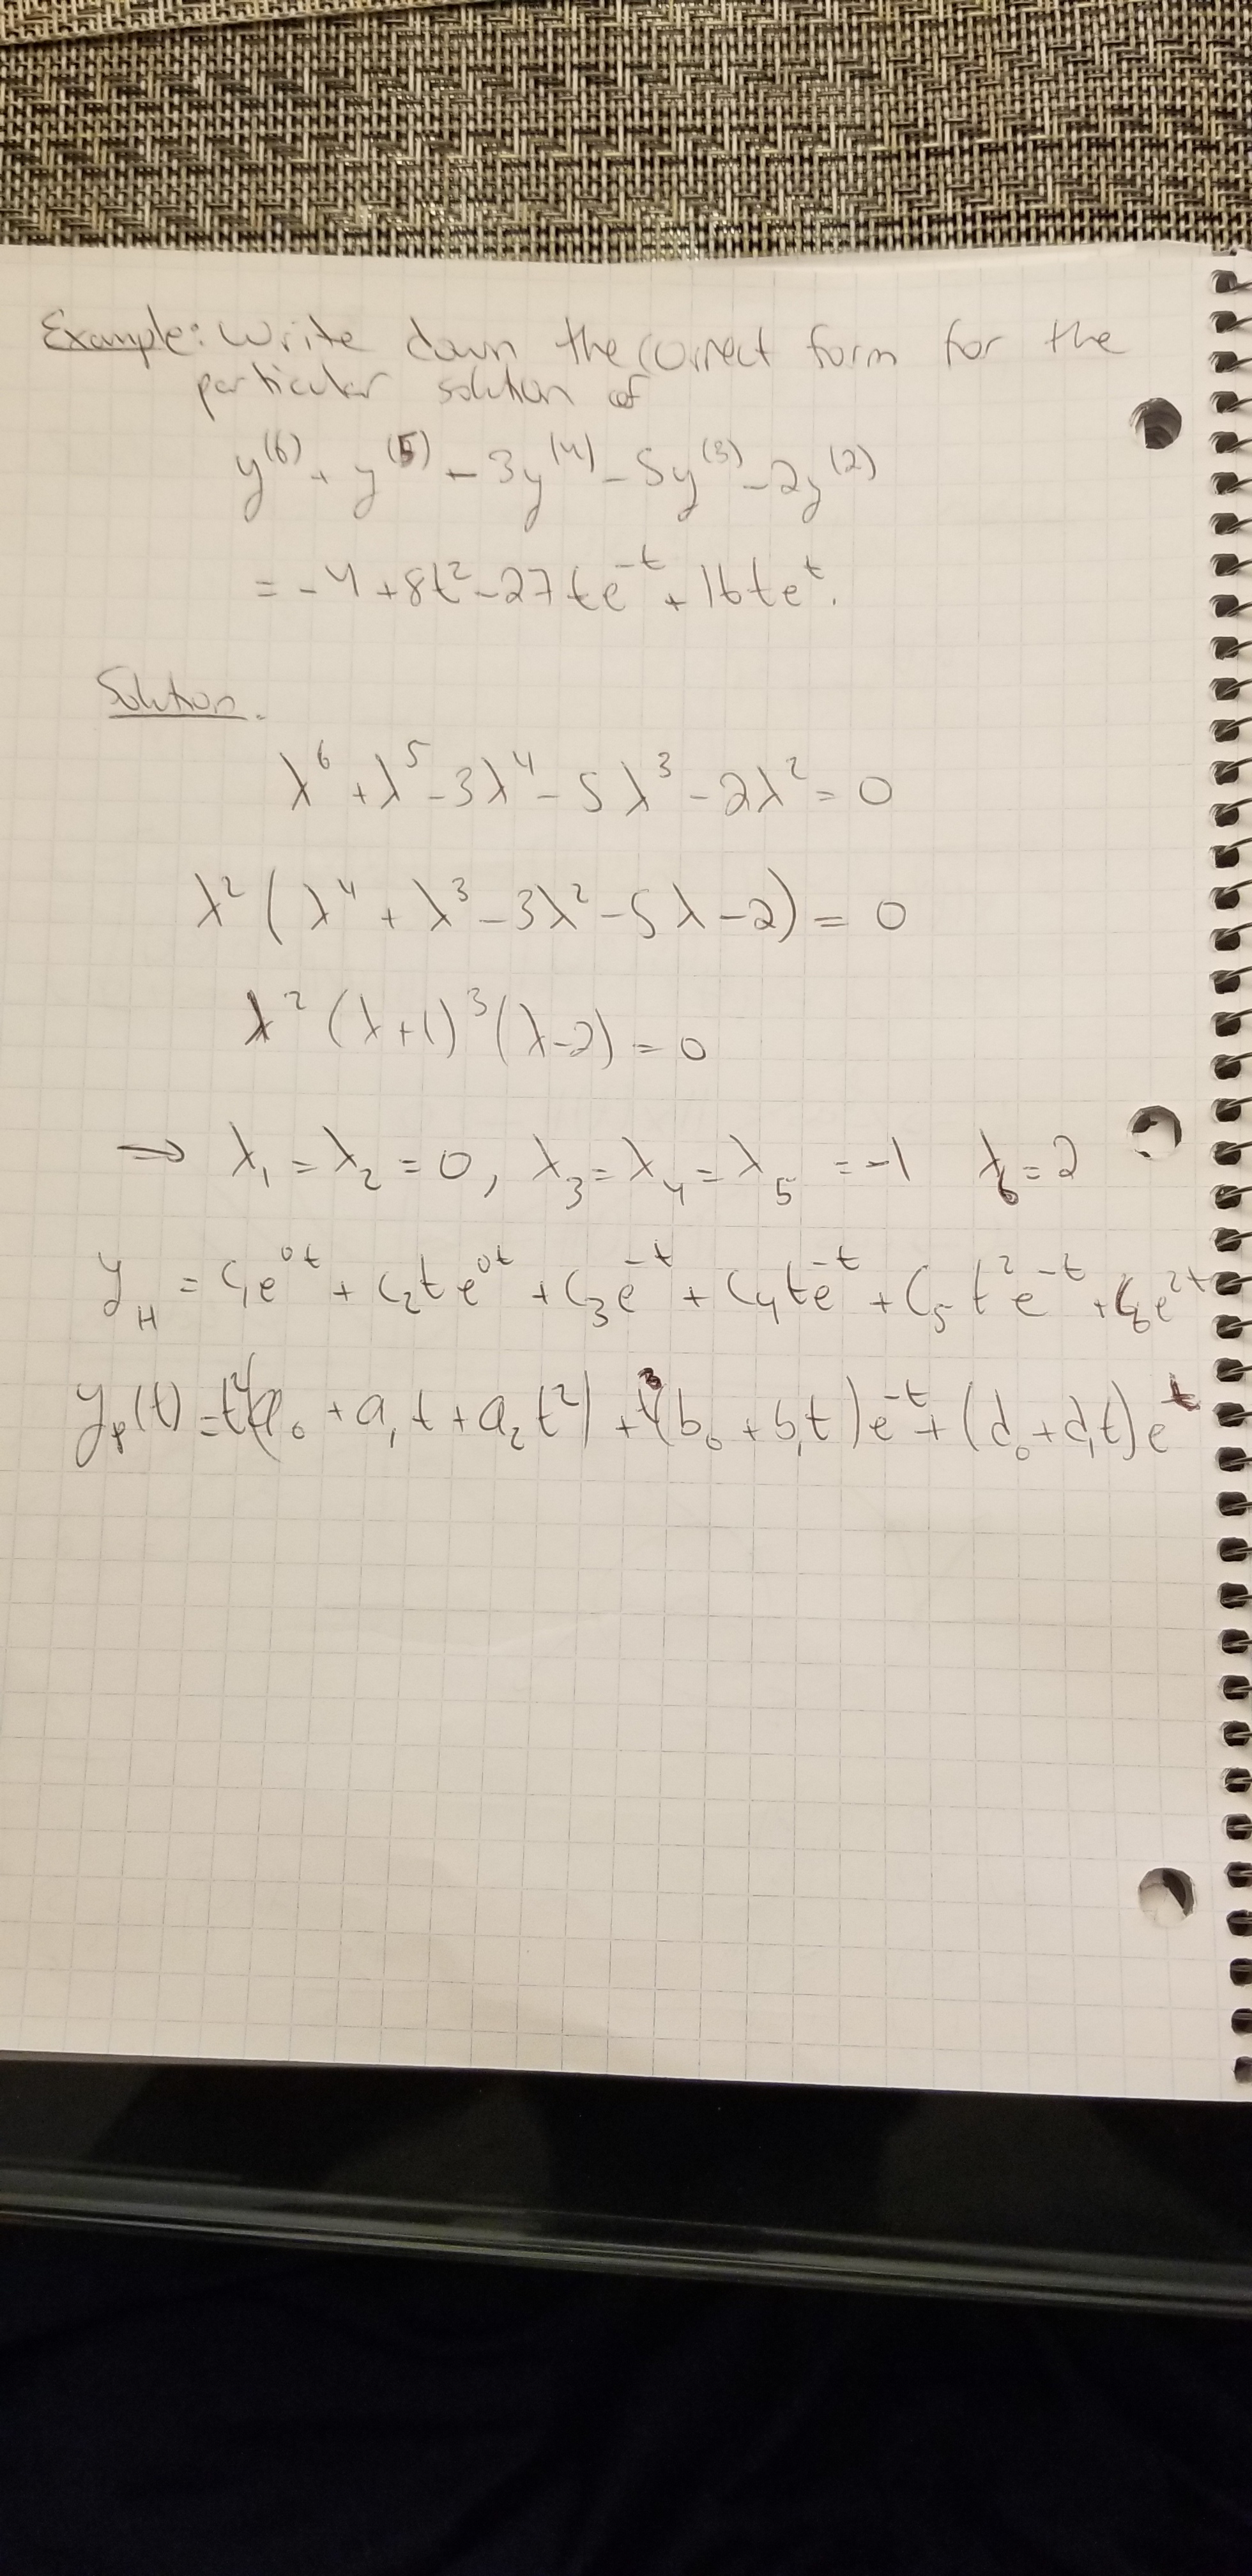 Example: Write down the correct form for the
particular solution of
y⁽⁶⁾ + y⁽⁵⁾ - 3y⁽⁴⁾ - 5y⁽³⁾ - 2y⁽²⁾
= -4 + 8t² - 27te⁻ᵗ + 16teᵗ.
Solution.
λ⁶ + λ⁵ - 3λ⁴ - 5λ³ - 2λ² = 0
λ² (λ⁴ + λ³ - 3λ² - 5λ - 2) = 0
λ² (λ+1)³ (λ-2) = 0
⇒ λ₁ = λ₂ = 0, λ₃ = λ₄ = λ₅ = -1 λ₆ = 2
y_H = c₁e⁰ᵗ + c₂te⁰ᵗ + c₃e⁻ᵗ + c₄te⁻ᵗ + c₅t²e⁻ᵗ + c₆e²ᵗ
y_p(t) = t²(a₀ + a₁t + a₂t²) + t³(b₀ + b₁t)e⁻ᵗ + (d₀ + d₁t)eᵗ